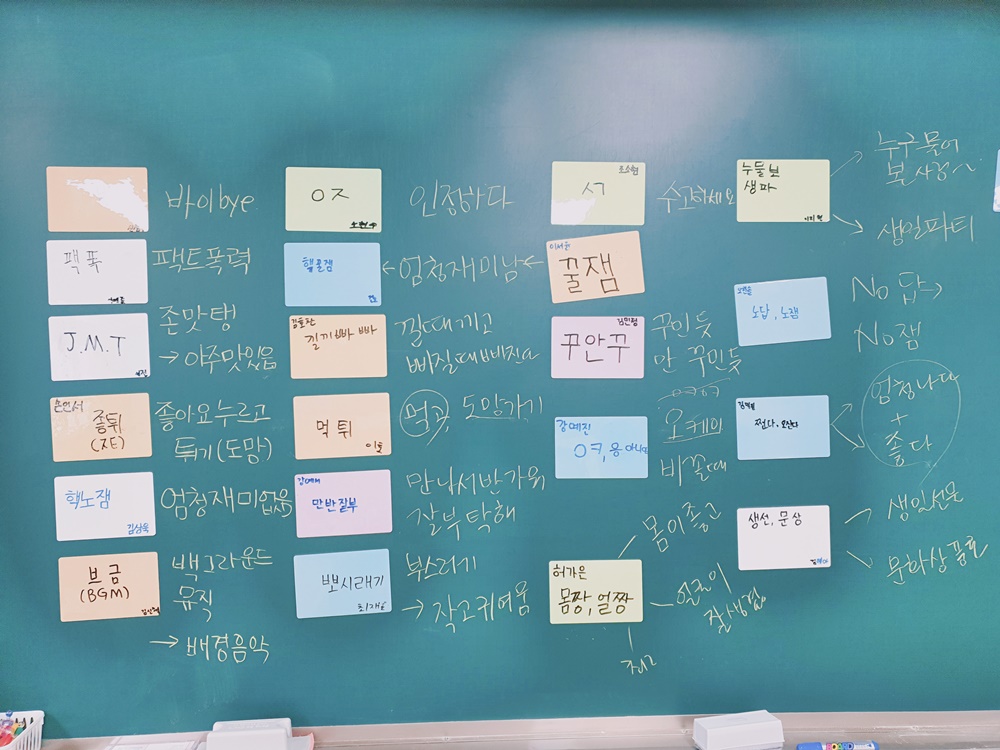 바이bye
팩폭
팩트폭력
J.M.T
존맛탱
→ 아주맛있음
손연서
좋튀
(ㅈE)
좋아요누르고
튀기(도망)
핵노잼
김상욱
엄청재미없음
브금
(BGM)
백그라운드
뮤직
→ 배경음악
ㅇㅈ
인정하다
핵꿀잼
← 엄청재미남 ←
낄끼빠빠
낄때끼고
빠질때빠진다
먹튀
이슬
먹고 도망가기
만반잘부
만나서반가워
잘부탁해
뽀시래기
부스러기
→ 작고귀여움
ㅅㄱ
수고하세요
이서윤
꿀잼
김민정
꾸안꾸
꾸민듯
안 꾸민듯
강예진
ㅇㅋ,응 아니야
오케이
비꼴때
허가은
몸짱, 얼짱
몸이좋고
얼굴이
잘생겼
최고
누물보
생파
누구물어
본사람~
생일파티
노답, 노잼
No 답→
No잼
쩐다.오진다
엄청나다
+
좋다
생선, 문상
생일선물
문화상품권
BOARD